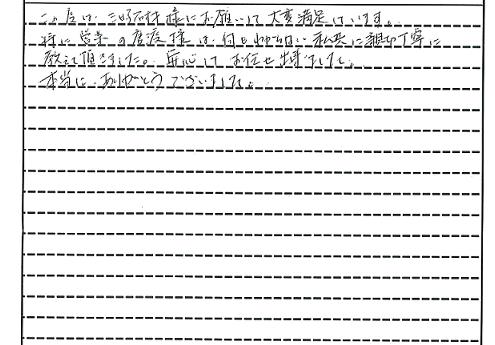 この度は、三好不動産様にお願いして大変満足しています。
特に営業の 様は、何もわからない私共に親切丁寧に
教えて頂きました。安心してお任せ出来ました。
本当に、ありがとうございました。